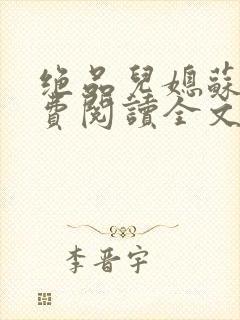 絶品兒媳蘇
費閱讀全文
李晋宇